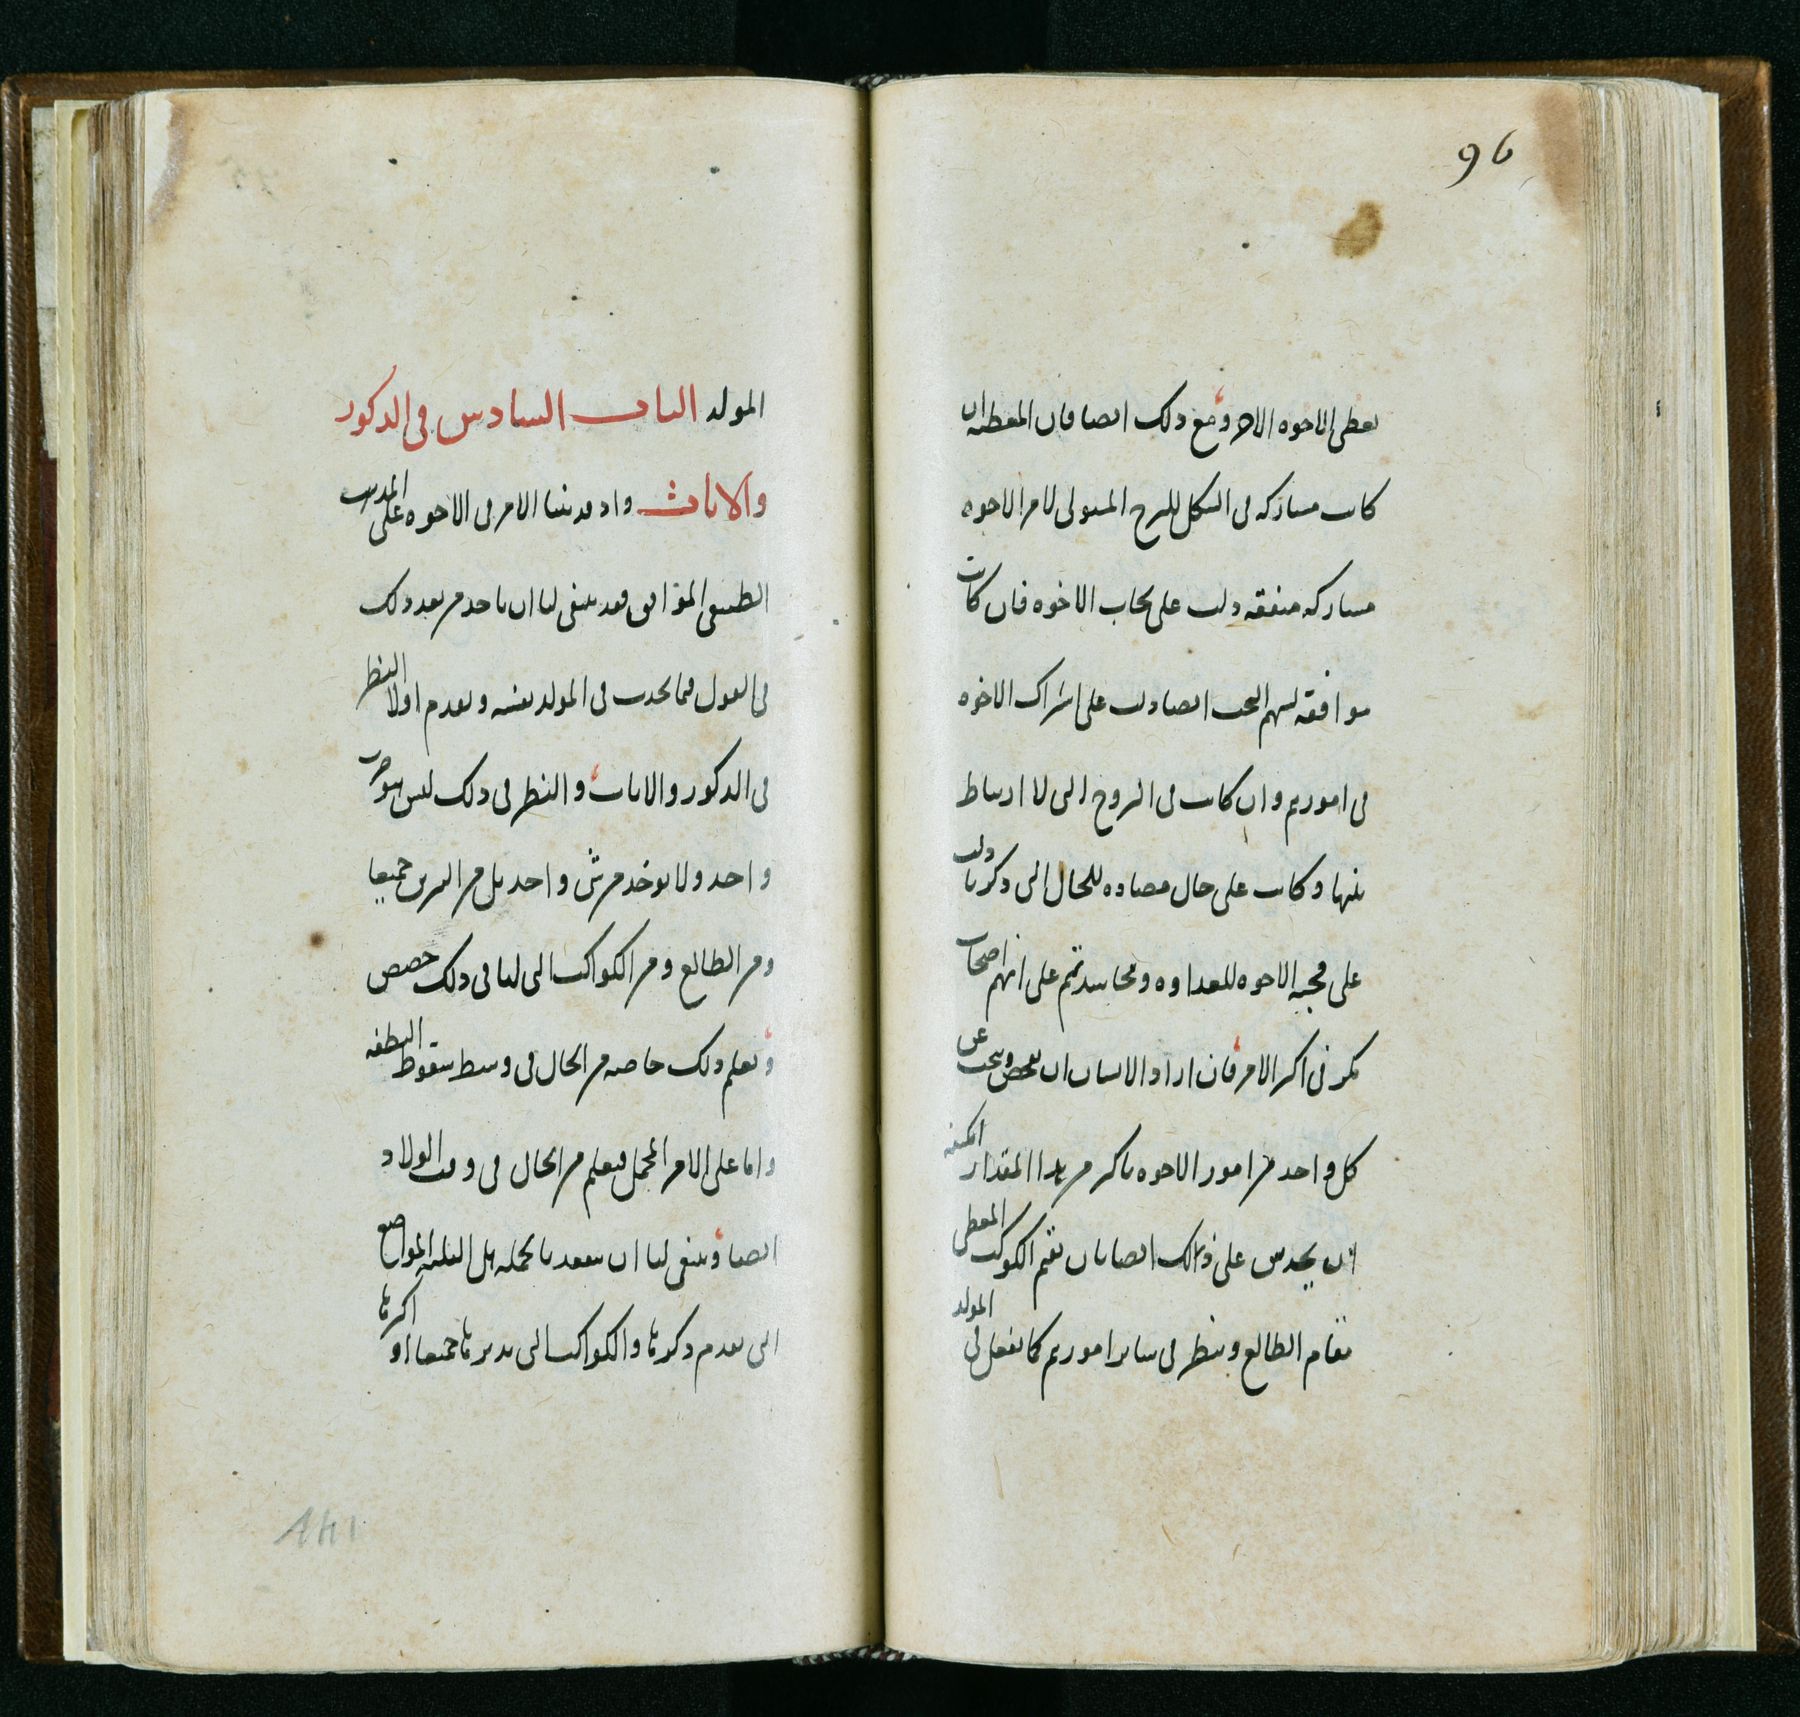 96
يعطى الاخوة الاخر ومع ذلك ايضا فان المعطيه ان
كانت مشاركه فى الشكل للبرج المستولى لامر الاخوه
مشاركه متفقه دلت على تحاب الاخوه فان كانت
موافقه لسهم البخت ايضا دلت على اشتراك الاخوه
فى امورهم وان كانت فى البروج التى لا ارتباط
بينها وكانت على حال مضاده للحال التى ذكرنا دلت
على محبه الاخوه للعداوه ومحاسدتهم على انهم اصحاب
مكر فى اكثر الامر فان اراد الانسان ان يفحص ويبحث عن
كل واحد من امور الاخوه باكثر من هذا المقدار امكنه
ان يحدس على ذلك ايضا بان يقيم الكوكب المعطى
مقام الطالع وينظر فى سائر امورهم كما يفعل فى المولد
المولد الباب السادس فى الذكور
والاناث واذ قد بينا الامر فى الاخوه على المذهب
الطبيعى الموافق فقد ينبغى لنا ان ناخذ من بعد ذلك
فى القول فيما يحدث فى المولد نفسه ونقدم اولا النظر
فى الذكور والاناث والنظر فى ذلك ليس هو من
واحد ولا يوخذ من شى واحد بل من النيرين جميعا
ومن الطالع ومن الكواكب التى لها فى ذلك حصص
ونعلم ذلك خاصه من الحال فى وسط سقوط النطفه
واما على الامر المجمل فيعلم من الحال فى وقت الولاد
ايضا وينبغى لنا ان نتفقد بالجمله هل الثلثه المواضع
التى تقدم ذكرها والكواكب التى تدبرها جميعا او اكثرها
141